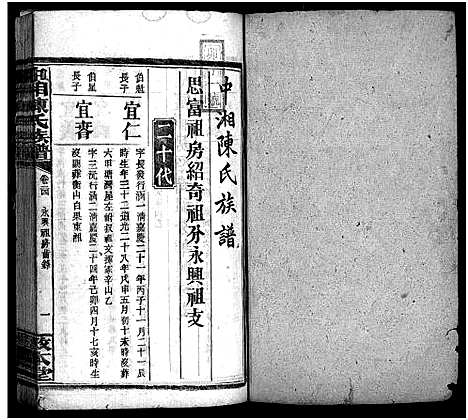 中湘陳氏族譜
思富祖房紹奇祖分永興祖支
二十代
伯魁
長子
宜仁
字長發行滿一清嘉慶二十一年丙子十一月二十一辰
時生年三十二道光二十八年戊申五月初十未時沒葬
六甲塘灣屋左傍叔祖文塚辛山乙
伯星
長子
宜
字三沅行滿二清嘉慶二十四年己卯四月十七亥時生
沒闕葬衡山白果東湘
中湘陳氏族譜
卷三四
永興祖房齒錄
一